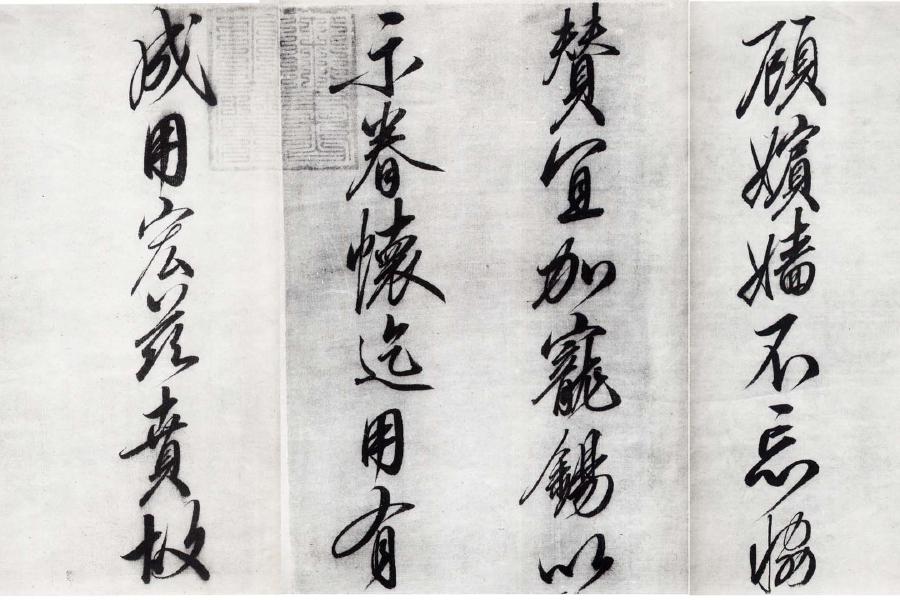 顧嬪嬙不忘協
贊宜加寵錫以
示眷懷迄用有
成用宏茲賁故